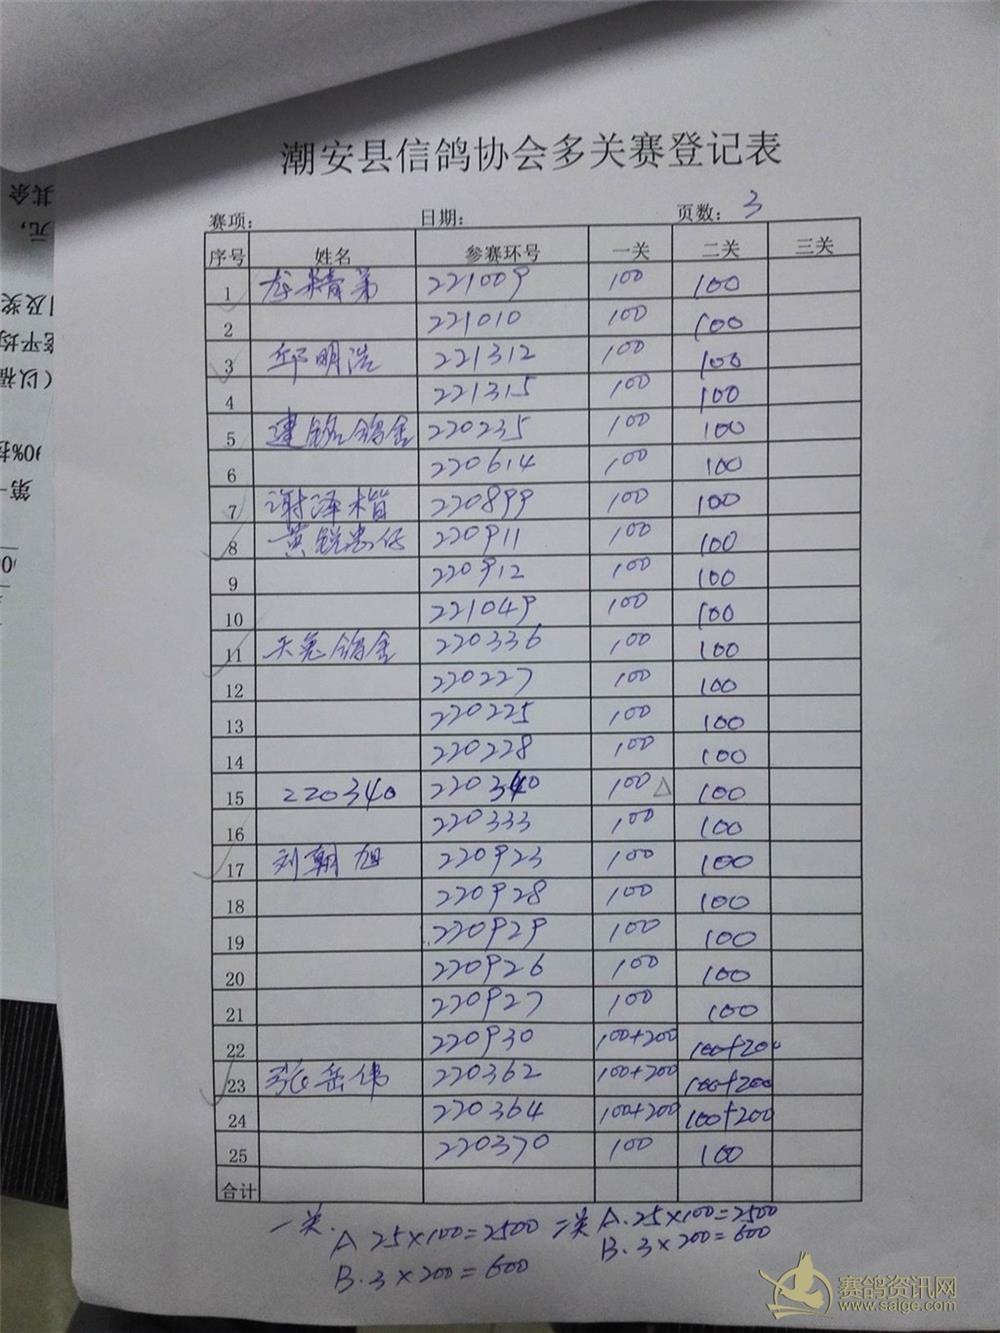 潮安县信鸽协会多关赛登记表
赛项: 日期: 页数: 3
序号 姓名 参赛环号 一关 二关 三关
1 龙精弟 221009 100 100
2 221010 100 100
3 邱明浩 221312 100 100
4 221315 100 100
5 建铭鸽舍 220235 100 100
6 220614 100 100
7 谢泽楷 220899 100 100
8 黄锐忠仔 220911 100 100
9 220912 100 100
10 221049 100 100
11 天苑鸽舍 220336 100 100
12 220227 100 100
13 220225 100 100
14 220228 100 100
15 220340 220340 100 △ 100
16 220333 100 100
17 刘朝旭 220923 100 100
18 220928 100 100
19 220929 100 100
20 220926 100 100
21 220927 100 100
22 220930 100+200 100+200
23 张岳伟 220362 100+200 100+200
24 220364 100+200 100+200
25 220370 100 100
合计
一关. A 25×100=2500 二关 A.25×100=2500
B.3×200=600 B.3×200=600
其余
元,
及奖
平均
(以福
00%按
第一
赛鸽资讯网
www.saige.com